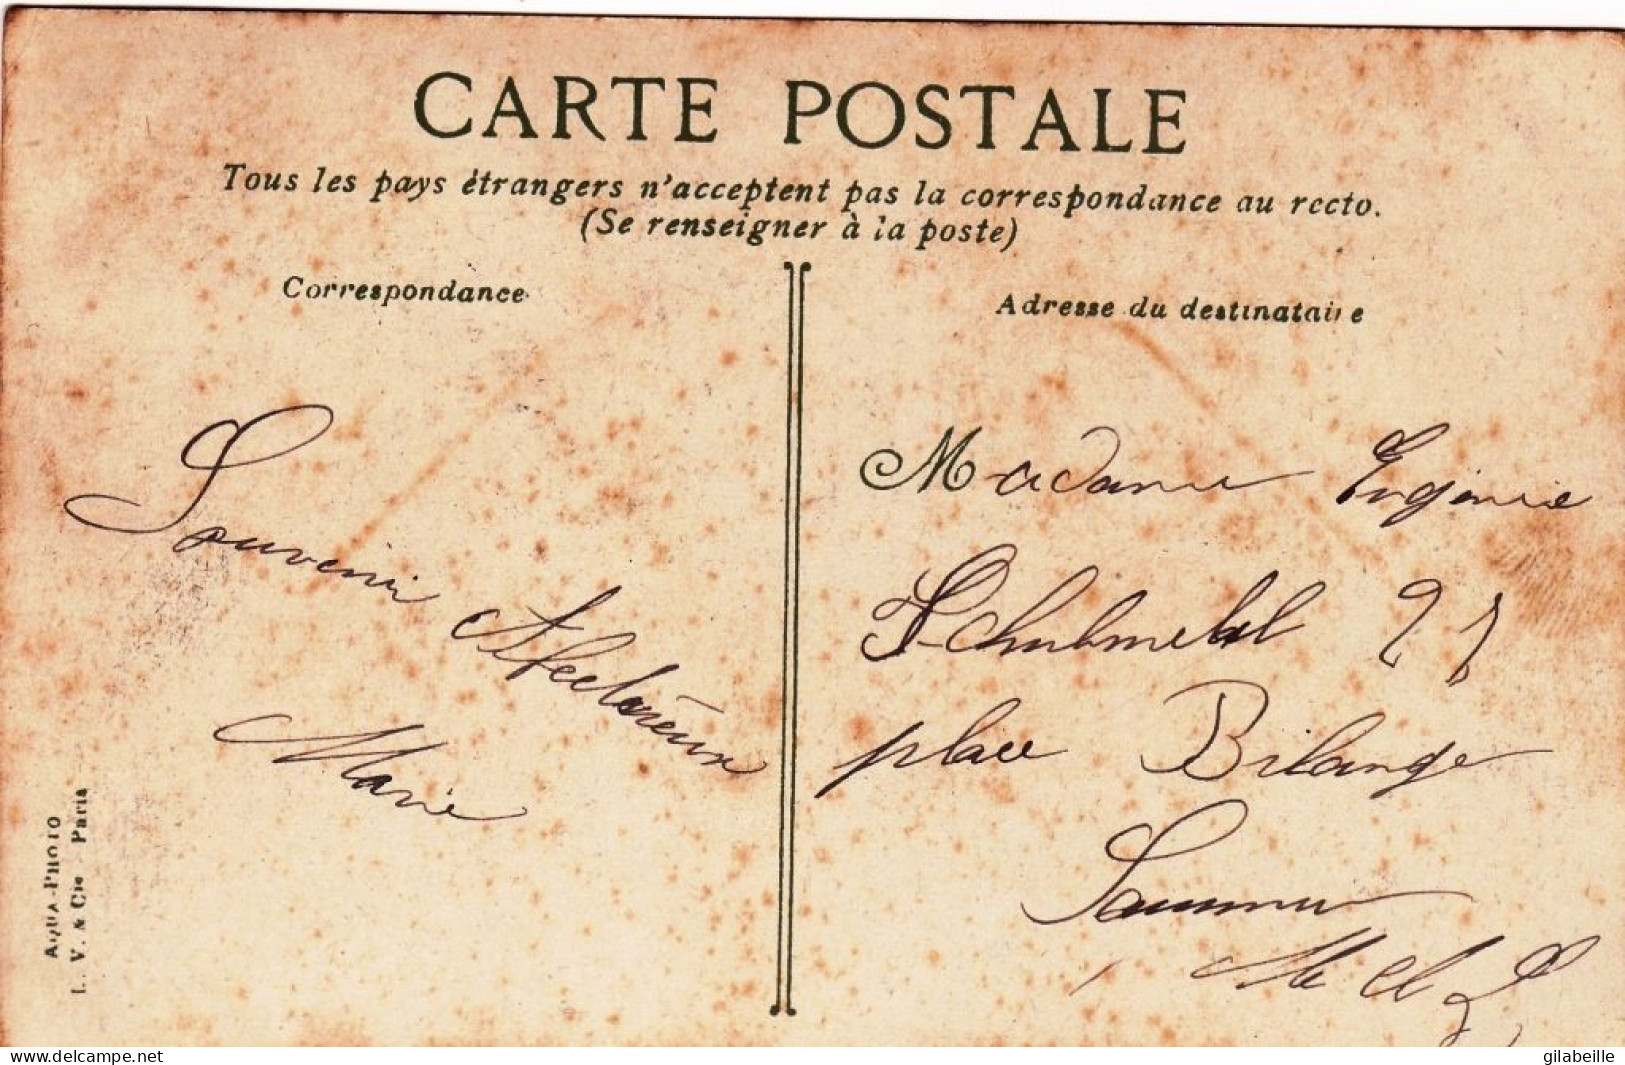 CARTE POSTALE
Tous les pays étrangers n'acceptent pas la correspondance au recto.
(Se renseigner à la poste)
Correspondance
Souvenir
Affectueux
Marie
AQUA-PHOTO
L. V. & Cie - Paris
Adresse du destinataire
Madame Eugenie
27
place Bilange
Saumur
M et L
www.delcampe.net
gilabeille